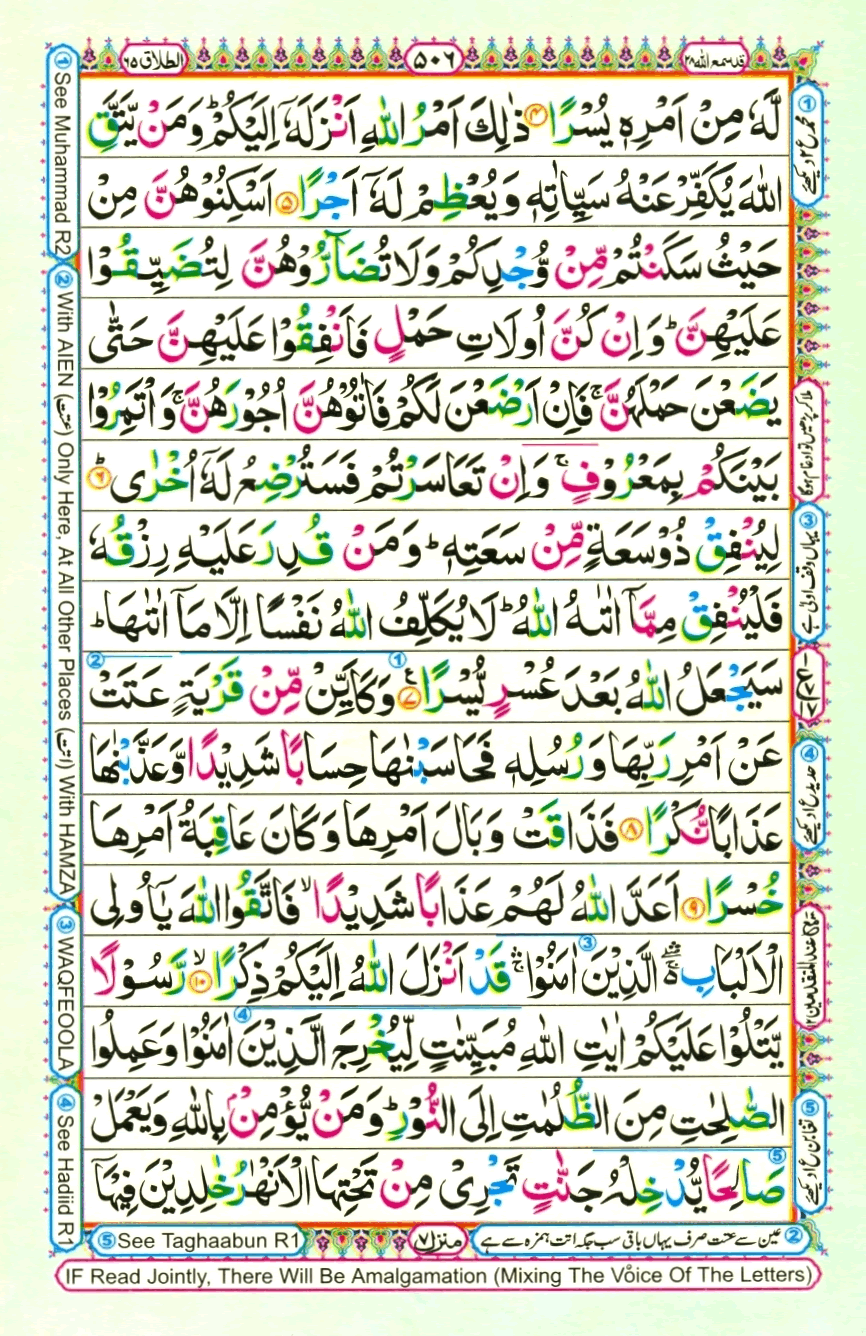 الطلاق ٦٥
٥٠٦
قد سمع الله ٢٨
لَّهٗ مِنْ اَمْرِهٖ يُسْرًا ۴ ذٰلِكَ اَمْرُ اللّٰهِ اَنْزَلَهٗۤ اِلَيْكُمْ ؕ وَ مَنْ يَّتَّقِ
اللّٰهَ يُكَفِّرْ عَنْهُ سَيِّاٰتِهٖ وَ يُعْظِمْ لَهٗۤ اَجْرًا ۵ اَسْكِنُوْهُنَّ مِنْ
حَيْثُ سَكَنْتُمْ مِّنْ وُّجْدِكُمْ وَ لَا تُضَآرُّوْهُنَّ لِتُضَيِّقُوْا
عَلَيْهِنَّ ؕ وَ اِنْ كُنَّ اُولَاتِ حَمْلٍ فَاَنْفِقُوْا عَلَيْهِنَّ حَتّٰى
يَضَعْنَ حَمْلَهُنَّ ۚ فَاِنْ اَرْضَعْنَ لَكُمْ فَاٰتُوْهُنَّ اُجُوْرَهُنَّ ۚ وَ اْتَمِرُوْا
بَيْنَكُمْ بِمَعْرُوْفٍ ۚ وَ اِنْ تَعَاسَرْتُمْ فَسَتُرْضِعُ لَهٗۤ اُخْرٰى ۶
لِيُنْفِقْ ذُوْ سَعَةٍ مِّنْ سَعَتِهٖ ؕ وَ مَنْ قُدِرَ عَلَيْهِ رِزْقُهٗ
فَلْيُنْفِقْ مِمَّاۤ اٰتٰىهُ اللّٰهُ ؕ لَا يُكَلِّفُ اللّٰهُ نَفْسًا اِلَّا مَاۤ اٰتٰىهَا ؕ
سَيَجْعَلُ اللّٰهُ بَعْدَ عُسْرٍ يُّسْرًا ۷ وَ كَاَيِّنْ مِّنْ قَرْيَةٍ عَتَتْ
عَنْ اَمْرِ رَبِّهَا وَ رُسُلِهٖ فَحَاسَبْنٰهَا حِسَابًا شَدِيْدًا وَّ عَذَّبْنٰهَا
عَذَابًا نُّكْرًا ۸ فَذَاقَتْ وَبَالَ اَمْرِهَا وَ كَانَ عَاقِبَةُ اَمْرِهَا
خُسْرًا ۹ اَعَدَّ اللّٰهُ لَهُمْ عَذَابًا شَدِيْدًا ۙ فَاتَّقُوا اللّٰهَ يٰۤاُولِى
الْاَلْبَابِ ۛۚۖ الَّذِيْنَ اٰمَنُوْا ۛ قَدْ اَنْزَلَ اللّٰهُ اِلَيْكُمْ ذِكْرًا ۙ ۱۰ رَّسُوْلًا
يَّتْلُوْا عَلَيْكُمْ اٰيٰتِ اللّٰهِ مُبَيِّنٰتٍ لِّيُخْرِجَ الَّذِيْنَ اٰمَنُوْا وَ عَمِلُوا
الصّٰلِحٰتِ مِنَ الظُّلُمٰتِ اِلَى النُّوْرِ ؕ وَ مَنْ يُّؤْمِنْۢ بِاللّٰهِ وَ يَعْمَلْ
صَالِحًا يُّدْخِلْهُ جَنّٰتٍ تَجْرِىْ مِنْ تَحْتِهَا الْاَنْهٰرُ خٰلِدِيْنَ فِيْهَاۤ
① محمد ع ٢ دیکھئے
ملا کر پڑھیں تو ادغام ہوگا
③ یہاں وقف اولٰی ہے
④ حدید ع ١ دیکھئے
⑤ تغابن ع ١ دیکھئے
① See Muhammad R2
② With AIEN (عتت) Only Here, At All Other Places (اتت) With HAMZA
③ WAQFEOOLA
④ See Hadiid R1
⑤ See Taghaabun R1
منزل ٧
② عین سے عتت صرف یہاں باقی سب جگہ اتت ہمزہ سے ہے
IF Read Jointly, There Will Be Amalgamation (Mixing The Voice Of The Letters)